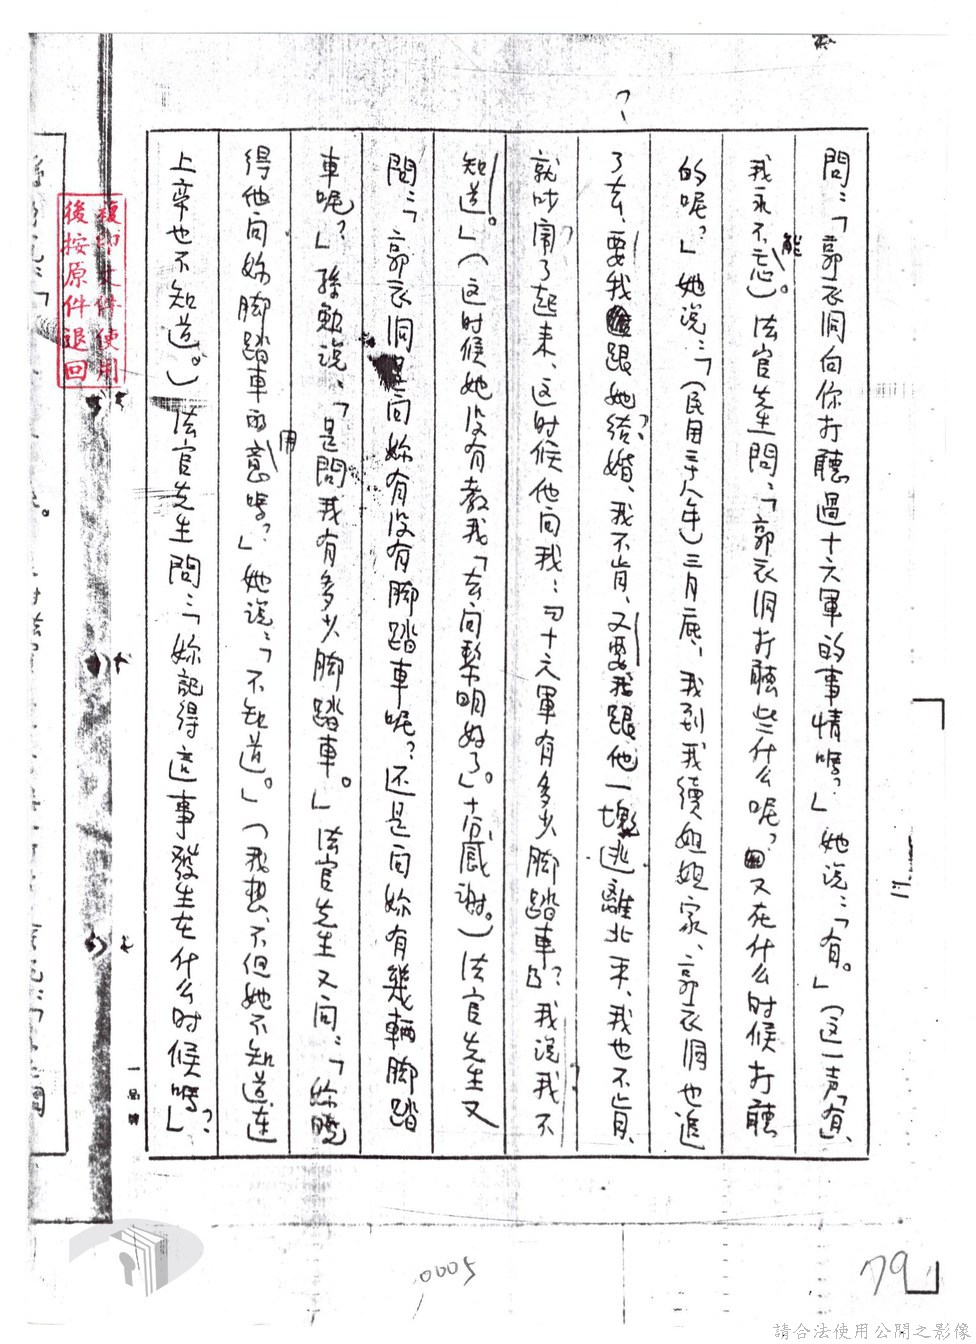 問：「郭衣洞向你打聽過十六軍的事情嗎？」她說：「有。」（这一声「有」、
我永不能忘）。法官先生問：「郭衣洞打聽些什么呢？又在什么时候打聽
的呢？」她说：「（民国三十八年）三月底，我到我續姐姐家、郭衣洞也追
了去，要我跟她结婚、我不肯，又要我跟他一塊逃離北平、我也不肯、
就吵鬧了起来、这时候他向我：『十六軍有多少脚踏車？』我说我不
知道。」（这时候她没有教我「去问黎明好了」。十分感謝。）法官先生又
問：「郭衣洞是问妳有没有脚踏車呢？还是问妳有幾輛脚踏
車呢？」孫勉说：「是問我有多少脚踏車。」法官先生又问：「妳曉
得他问妳脚踏車的用意嗎？」她说：「不知道。」（我想、不但她不知道、連
上帝也不知道。）法官先生問：「妳記得這事發生在什么时候嗎？」
複印文件使用
後按原件退回
一品牌
17
0005
79
請合法使用公開之影像